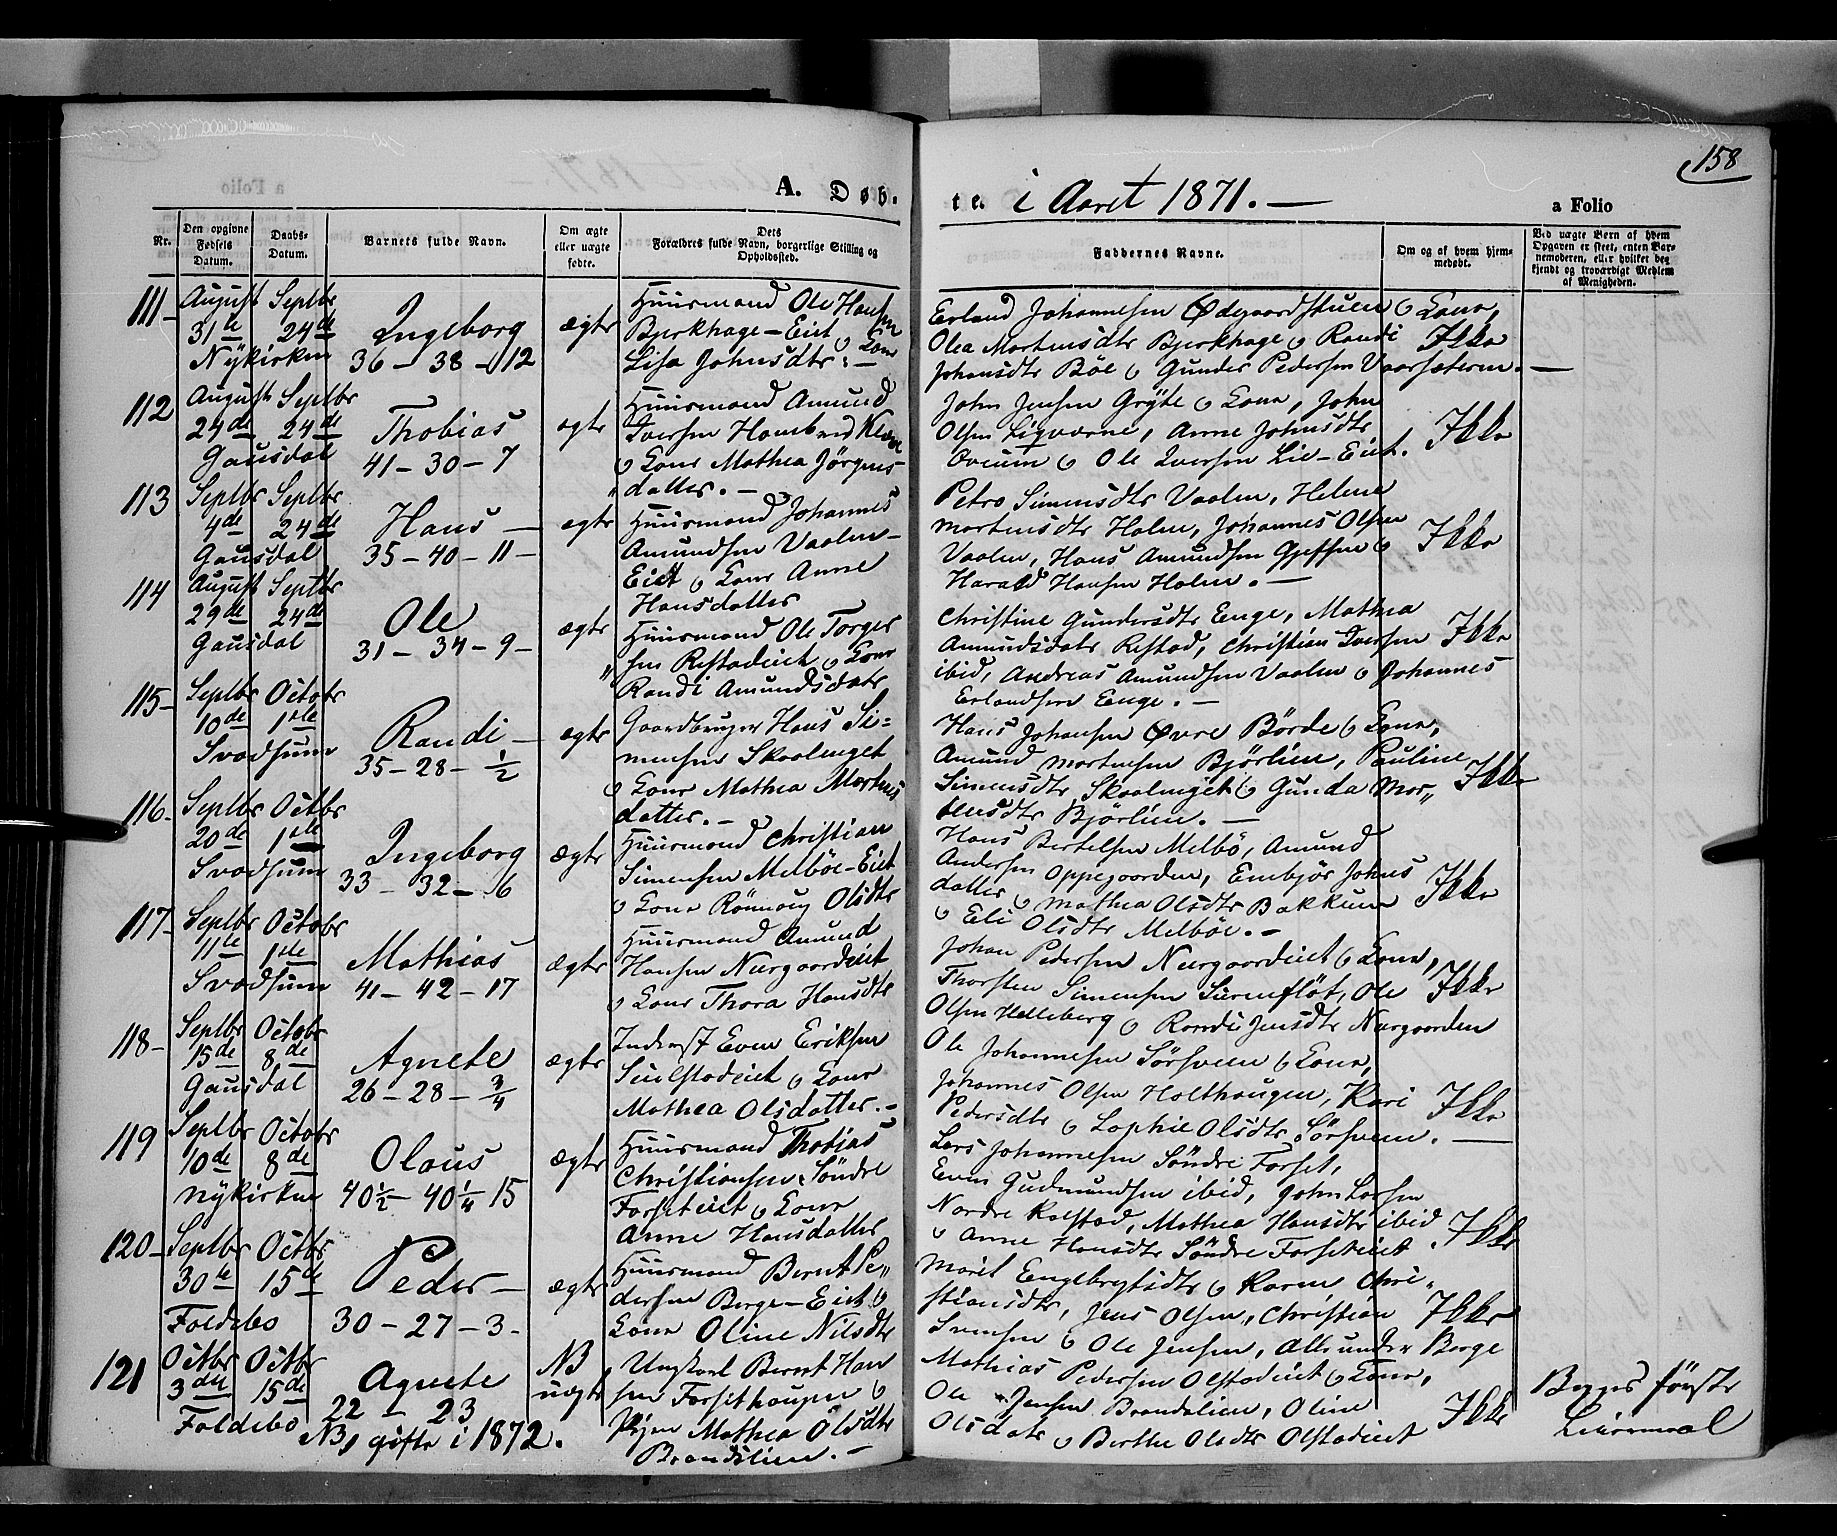 158
A. Døb.
te. i Aaret 1871. —
a Folio
Nr.
Den opgivne Fødsels Datum.
Daabs-Datum.
Barnets fulde Navn.
Om ægte eller uægte fødte.
Dets Forældres fulde Navn, borgerlige Stilling og Opholdssted.
Faddernes Navne.
Om og af hvem hjemmedøbt.
Ved uægte Børn af hvem Opgaven er skeet, enten Barnemoderen, eller hvilket bekjendt og troværdigt Medlem af Menigheden.
111 –
August 31te
Septbr 24de
Nykirken
Ingeborg
36 – 38 – 12
ægte
Huusmand Ole Hansen
Bjerkhage – Eiet & Kone
Lisa Johnsdtr. –
Erland Johannesen Ødegaardstuen & Kone,
Olea Mortensdtr Bjerkhage & Randi
Johansdtr Böe & Gunder Pedersen Vaarsæteren. –
Ikke
112
August 24de
Septbr 24de
Gausdal
Thobias
41 – 30 – 7
ægte
Huusmand Amund
Iversen
& Kone Mathea Jörgens-
datter. –
John Jensen Gryte & Kone, John
Olsen Ligvarne, Anne Johnsdtr
& Ole Iversen Lie – Eiet.
Ikke
113
Septbr 4de
Septbr 24de
Gausdal
Hans –
35 – 40 – 11 –
ægte
Huusmand Johannes
Amundsen Vaalen –
Eiet & Kone Anne
Hansdatter
Petra Simensdtr Vaalen, Helene
Mortensdtr Holen, Johannes Olsen
Vaalen, Hans Amundsen &
Harald Hansen Holen. –
Ikke
114
August 29de
Septbr 24de
Gausdal
Ole
31 – 34 – 9 –
ægte
Huusmand Ole Torger
sen Restadeiet & Kone
Randi Amundsdatr
Christine Gundersdtr Enge, Mathea
Amundsdatr Restad, Christian Iversen
ibid, Andreas Amundsen Vaalen & Johannes
Erlandsen Enge. –
Ikke
115 –
Septbr 10de
Octobr 1ste
Svadsum
Randi –
35 – 28 – ½
ægte
Gaardbruger Hans Si-
mensen Skaalenget
& Kone Mathea Mortens
datter. –
Hans Johansen Øvre Börde & Kone,
Amund Mortensen Björlien, Pauline
Simensdtr Skaalenget & Gunda Mor„
tensdtr Björlien. –
Ikke
116 –
Septbr 20de
Octbr 1ste
Svadsum
Ingeborg
33 – 32 – 6
ægte
Huusmand Christian
Simensen Melböe – Eiet
& Kone Rönnoug Olsdtr
Hans Bertelsen Melbö, Amund
Andersen Oppegaarden, Embjör Johns
datter & Mathea Olsdtr Bakkum
& Eli Olsdtr Melböe. –
Ikke
117 –
Septbr 11te
Octobr 1ste
Svadsum
Mathias
41 – 42 – 17
ægte
Huusmand Amund
Hansen Nurgaardeiet
& Kone Thora Hansdtr
Johan Pedersen Nurgaardeiet & Kone,
Thorsten Simensen Surenflöt, Ole
Olsen Helleberg & Randi Jensdtr Nurgaarden
Ikke
118 –
Septbr 15de
Octobr 8de
Gausdal
Agnete
26 – 28 – ¾
ægte
Inderst Even Eriksen
Suulstadeiet & Kone
Mathea Olsdatter. –
Ole Johannesen Sörsveen & Kone,
Johannes Olsen Holthaugen, Kari
Pedersdtr & Sophie Olsdtr Sörsveen. –
Ikke
119
Septbr 10de
Octobr 8de
Nykirken
Olaus
40½ – 40¼ 15
ægte
Huusmand Thobias
Christiansen Söndre
Forseteiet & Kone
Anne Hansdatter
Lars Johannesen Söndre Forset,
Even Gudmundsen ibid, John Larsen
Nordre Kolstad, Mathea Hansdtr ibid
& Anne Hansdtr Söndre Forseteiet.
Ikke
120 –
Septbr 30te
Octbr 15de
Foldebo
Peder –
30 – 27 – 3 –
ægte
Huusmand Bernt Pe„
dersen Berge – Eiet &
Kone Oline Nilsdtr
Marit Engebrigtsdtr & Karen Chri-
stiansdtr, Jens Olsen, Christian
Svensen & Ole Jensen, Alle under Berge
Ikke
121
Octbr 3die
Octbr 15de
Foldebo
Agnete
22 – 23
NB, gifte i 1872.
NB uægte
Ungkarl Bernt Han
sen Forsethaugen &
Pigen Mathea Olsdtr
Brandslien. –
Mathias Pedersen Olstadeiet & Kone,
Ole Jensen Brandslien, Oline
Olsdatr & Berthe Olsdtr Olstadeiet
Ikke
Begges förste
Leiermaal